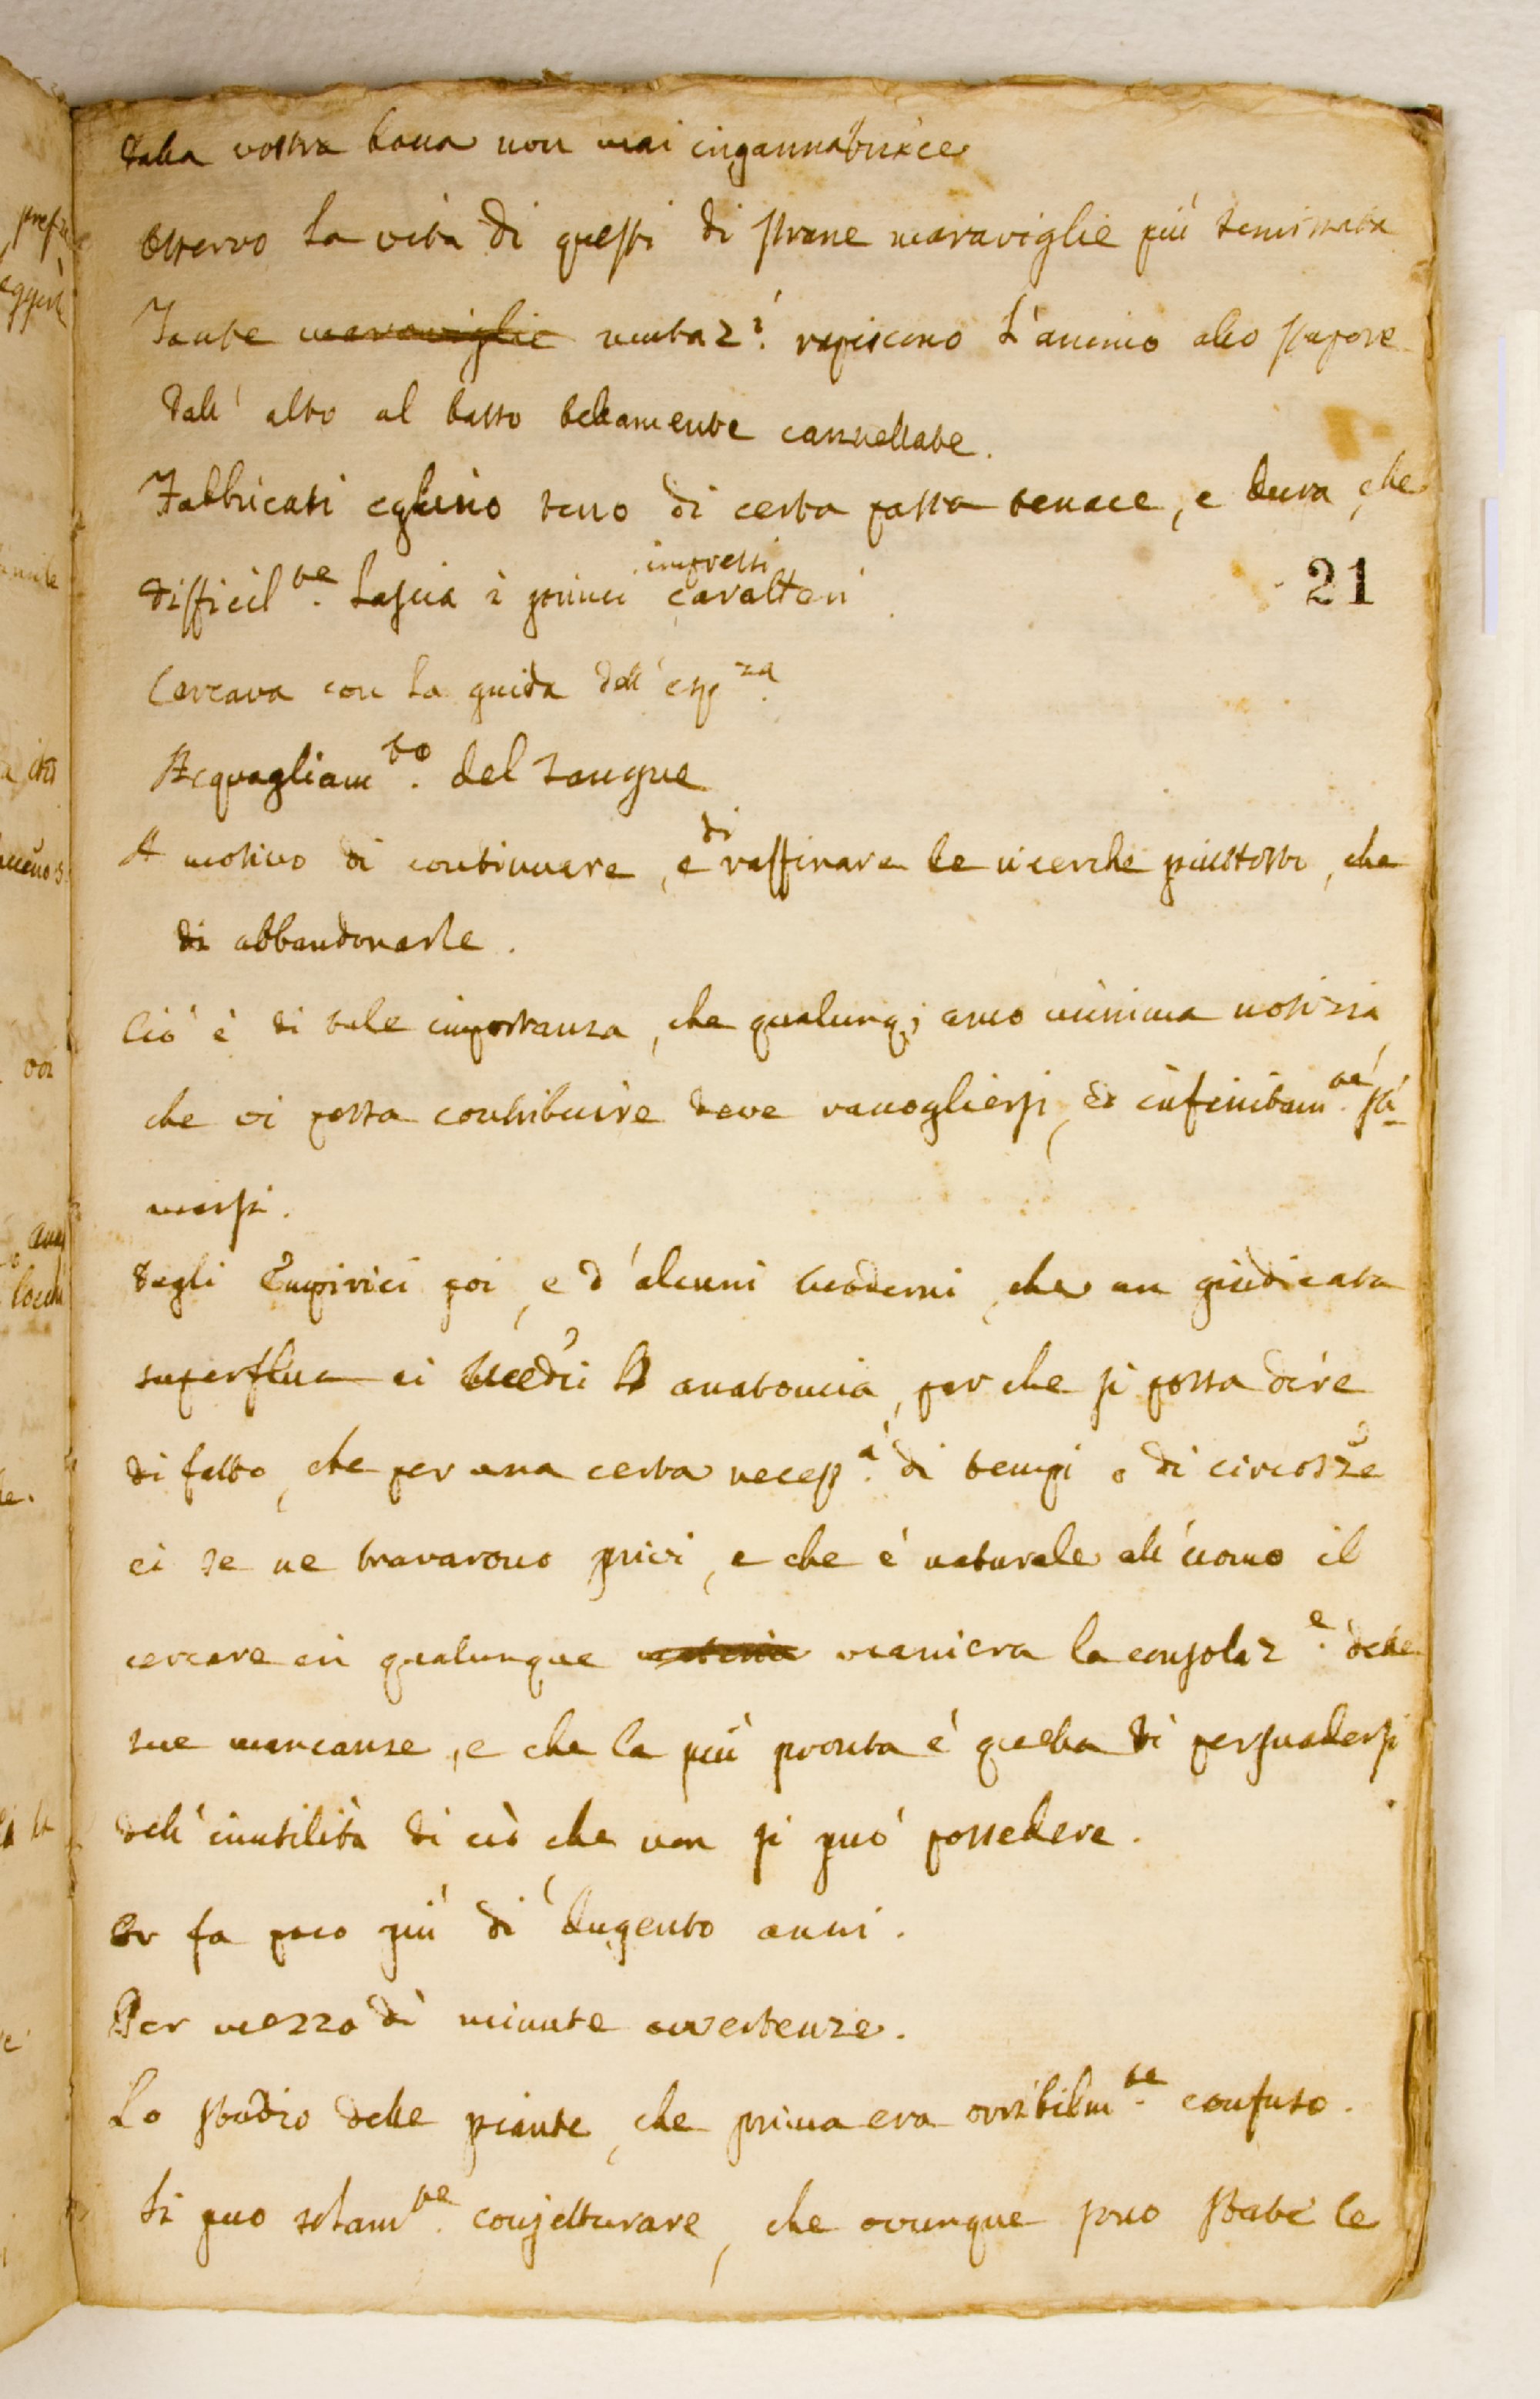 dalla vostra bocca non mai ingannatrice
Osservo la vita di questi di strane maraviglie più seminata
Tante maraviglie mutaz.i rapiscono l'animo allo stupore
dall' alto al basso bellamente cannellate.
Fabbricati eglino sono di certa passta tenace, e dura, che
difficil.te lascia i primi impressi caratteri
21
Cercava con la guida dell' esp.za
Acquagliam.to del sangue
A motivo di continuare, e di raffinare le ricerche piuttosto, che
di abbandonarle.
Ciò è di tale importanza, che qualunq; anco minima notizia
che vi possa contribuire deve raccogliersi, ed infinitam.te sti-
marsi.
Degli Empirici poi, e d'alcuni Moderni, che an giudicata
superflua ai Medici la anatomia, par che si possa dire
di fatto, che per una certa necess.à di tempi o di circosze
ei se ne trovarono privi, e che è naturale all'uomo il
cercare in qualunque maniera la consolaz.e delle
sue mancanze, e che la più pronta è quella di persuadersi
dell' inutilità di ciò che non si può possedere.
Or fa poco più di dugento anni.
Per mezzo di minute avvertenze.
Lo studio delle piante, che prima era orribilm.te confuso.
Si può solam.te conjetturare, che ovunque sono state le